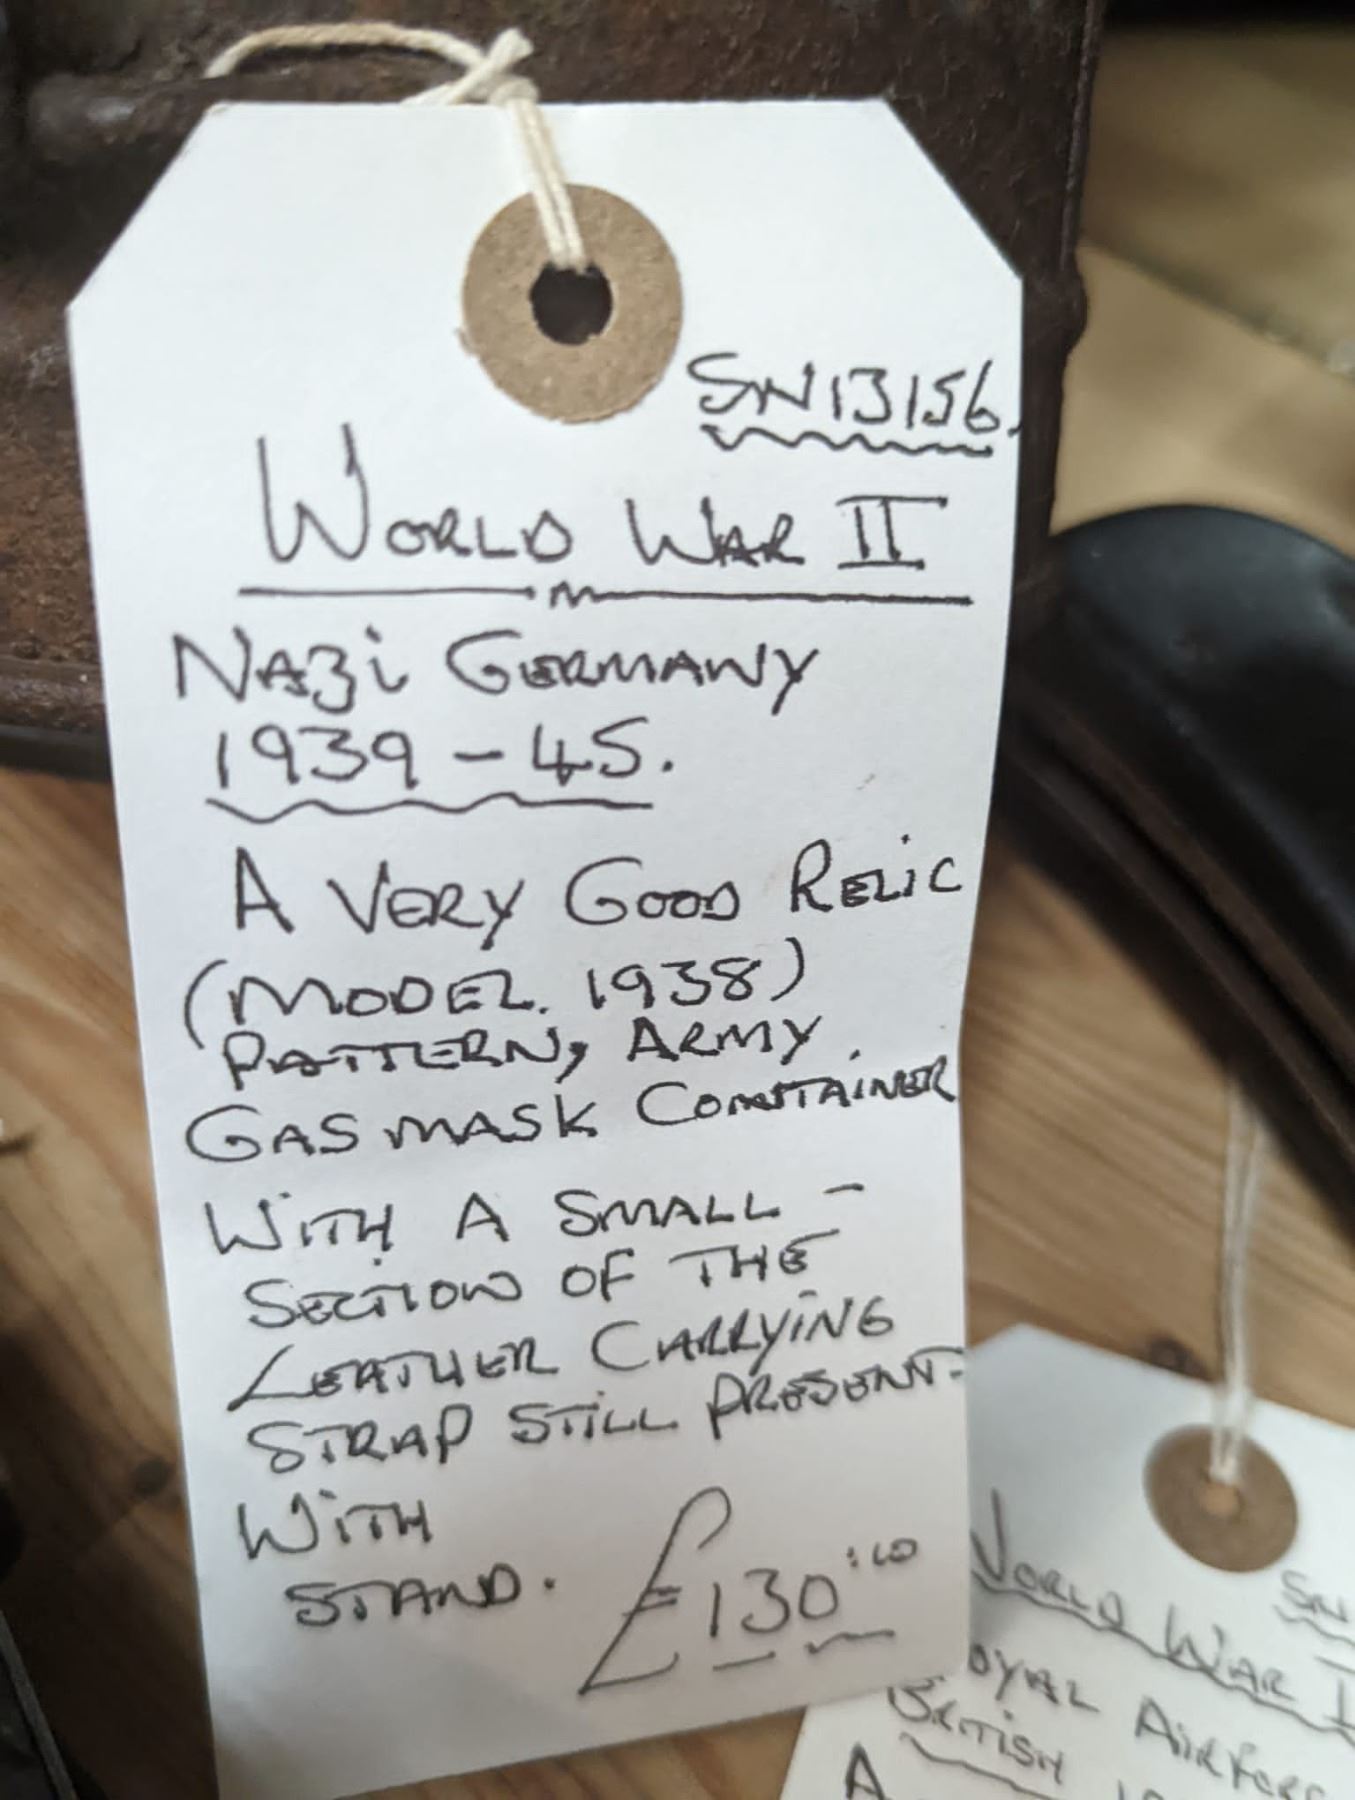 SN13156.
WORLD WAR II
NAZI GERMANY
1939 - 45.
A VERY GOOD RELIC
(MODEL. 1938)
PATTERN, ARMY
GAS MASK CONTAINER
WITH A SMALL -
SECTION OF THE
LEATHER CARRYING
STRAP STILL PRESENT -
WITH
STAND.
£130:00
SN
WORLD WAR I
ROYAL AIRFORC
BRITISH
A